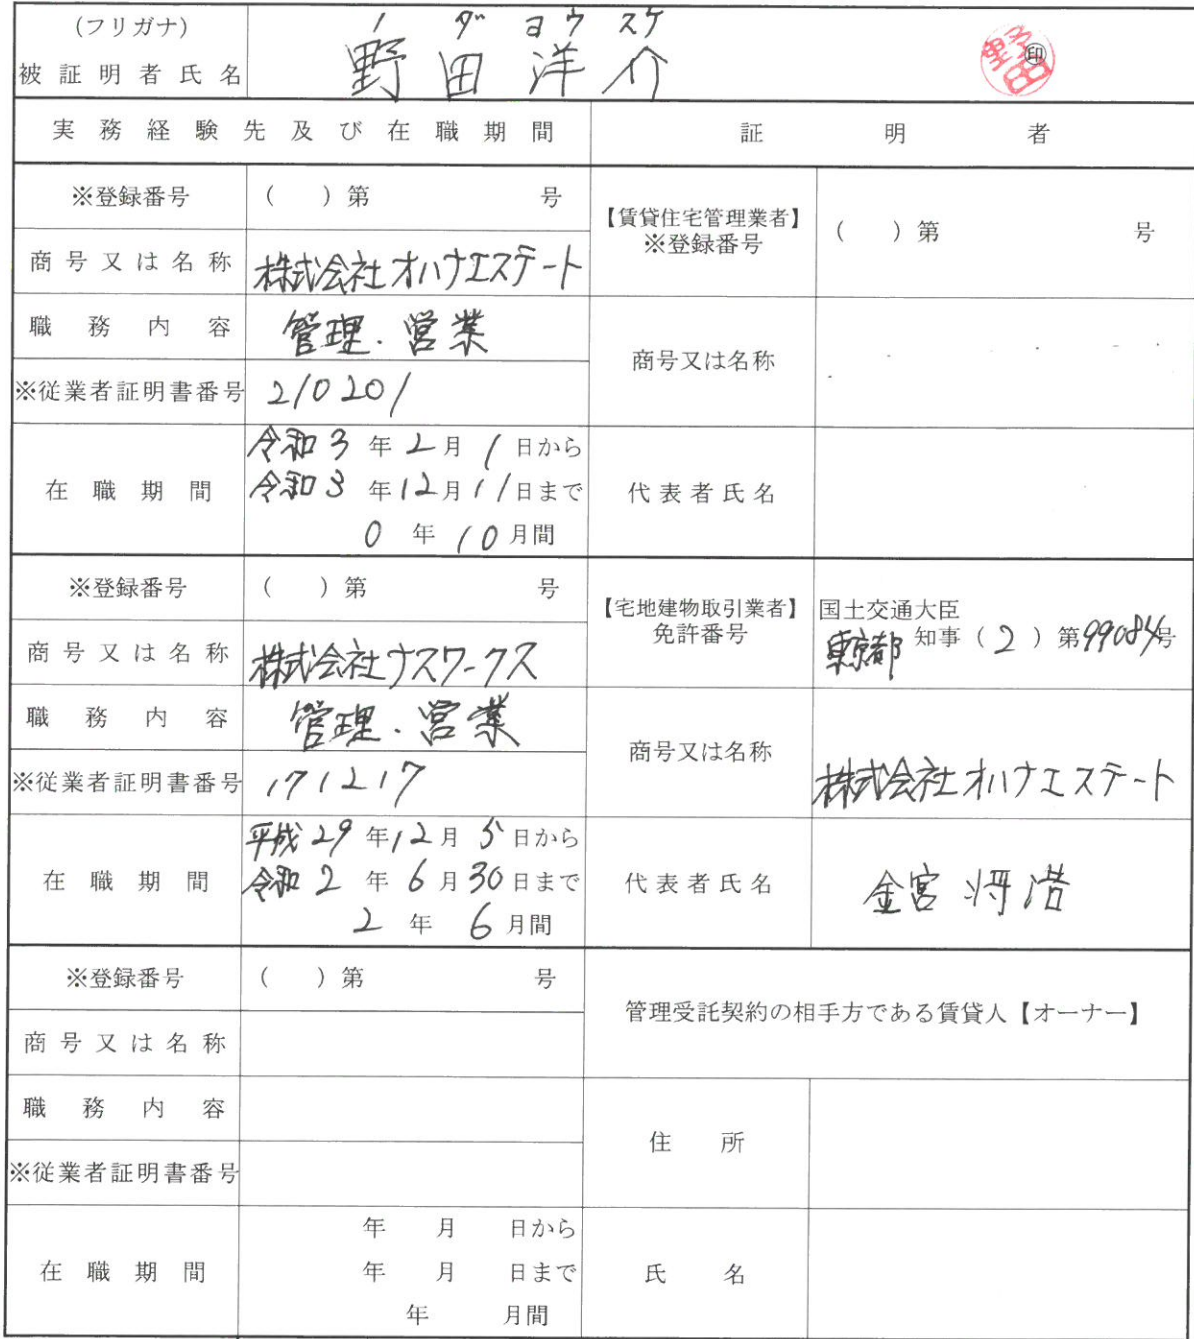 (フリガナ) ノダ ヨウスケ
被証明者氏名 野田洋介 ㊞ 野田
実務経験先及び在職期間 証明者
※登録番号 ( )第 号
商号又は名称 株式会社オハナエステート
職務内容 管理.営業
※従業者証明書番号 210201
在職期間 令和3年2月1日から
令和3年12月11日まで
0年10月間
【賃貸住宅管理業者】
※登録番号 ( )第 号
商号又は名称
代表者氏名
※登録番号 ( )第 号
商号又は名称 株式会社ナスワークス
職務内容 管理.営業
※従業者証明書番号 171217
在職期間 平成29年12月5日から
令和2年6月30日まで
2年6月間
【宅地建物取引業者】
免許番号
国土交通大臣
東京都 知事(2)第99084号
商号又は名称 株式会社オハナエステート
代表者氏名 金宮将浩
※登録番号 ( )第 号
商号又は名称
職務内容
※従業者証明書番号
在職期間 年 月 日から
年 月 日まで
年 月間
管理受託契約の相手方である賃貸人【オーナー】
住所
氏名